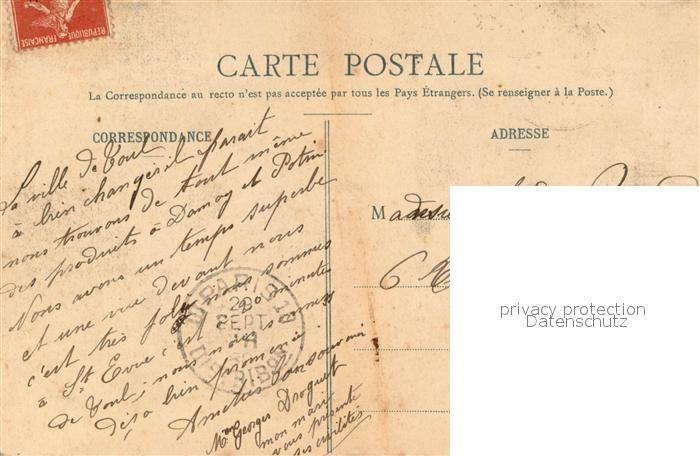 REPUBLIQUE FRANÇAISE
CARTE POSTALE
La Correspondance au recto n'est pas acceptée par tous les Pays Étrangers. (Se renseigner à la Poste.)
CORRESPONDANCE
La ville de Toul
à bien changer il parait
nous trouvons de tout même
des produits à Damoy et Potin.
Nous avons un temps superbe
et une vue devant nous
c'est très joli nous sommes
à St Evre c'est 20 minutes
de Toul; nous nous sommes
déjà bien promenés.
Amitiés souvenir
Mme Georges Droguet
mon mari
vous présente
ses civilités
PARIS
SEPT
ADRESSE
M
6 R
privacy protection
Datenschutz